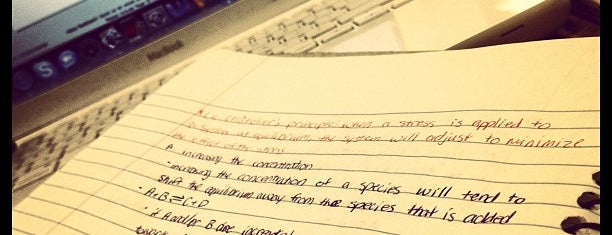 MacBook
*Le Chatelier's principle: when a stress is applied to
a system at equilibrium, the system will adjust to minimize
the effect of the stress
A. increasing the concentration
- increasing the concentration of a species will tend to
shift the equilibrium away from the species that is added
- A+B⇌C+D
- if A and/or B are